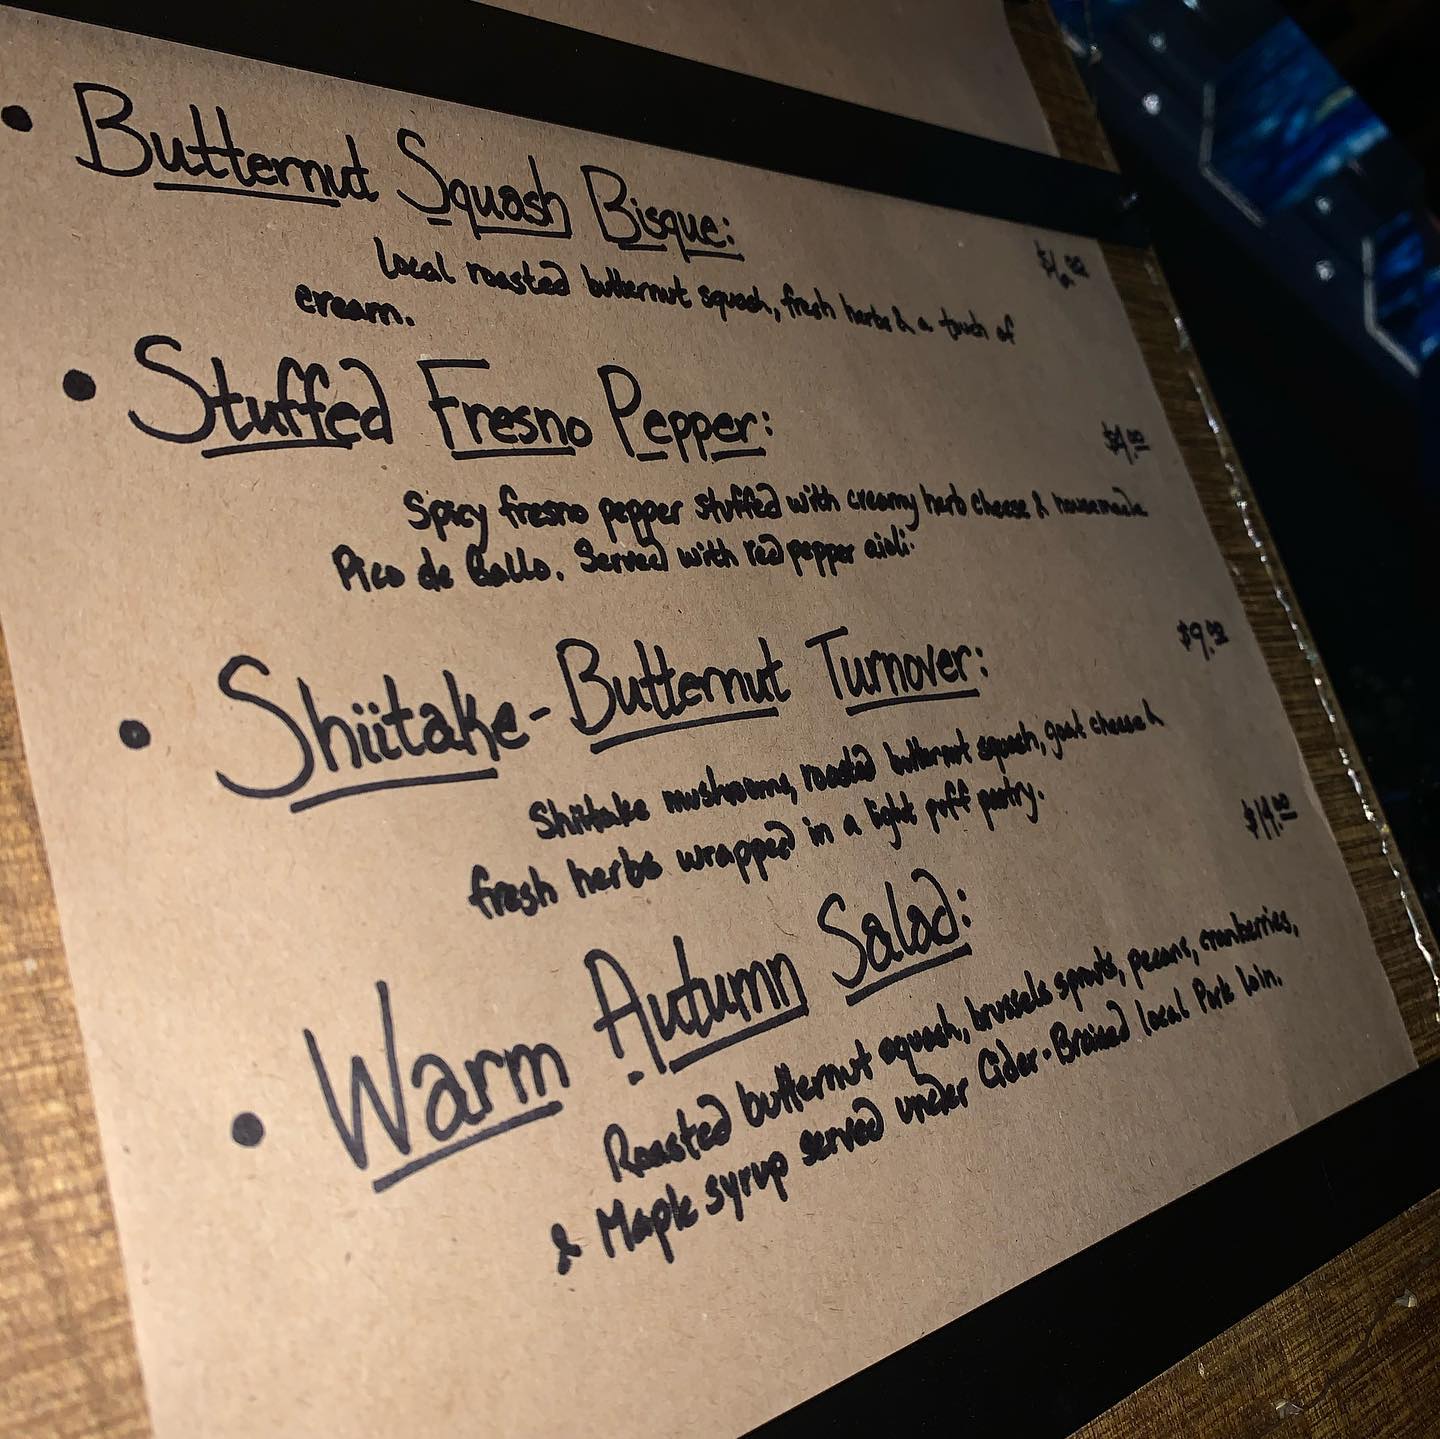 • Butternut Squash Bisque: $6.00
Local roasted butternut squash, fresh herbs & a touch of
cream.
• Stuffed Fresno Pepper:
Spicy fresno pepper stuffed with creamy herb cheese & housemade
Pico de Gallo. Served with red pepper aioli.
• Shiitake-Butternut Turnover: $9.00
Shiitake mushrooms, roasted butternut squash, goat cheese &
fresh herbs wrapped in a light puff pastry.
• Warm Autumn Salad: $14.00
Roasted butternut squash, brussels sprouts, pecans, cranberries,
& Maple syrup served under Cider-Brained local Pork Loin.